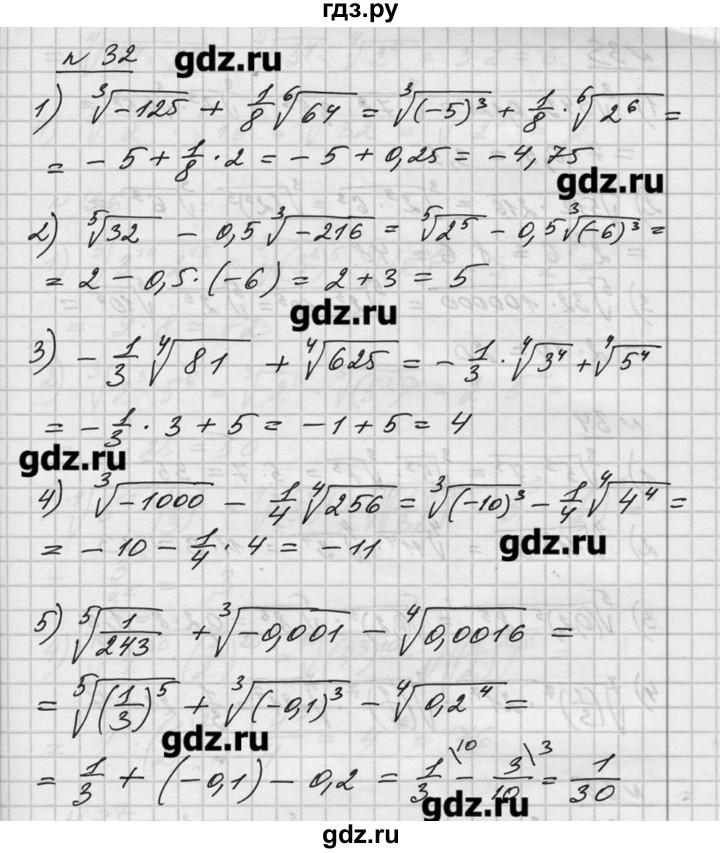 гдз.ру
№ 32 gdz.ru
1) ∛-125 + 1/8 ⁶√64 = ∛(-5)³ + 1/8 · ⁶√2⁶ =
= - 5 + 1/8 · 2 = - 5 + 0,25 = - 4,75
gdz.ru
2) ⁵√32 - 0,5 ∛-216 = ⁵√2⁵ - 0,5 ∛(-6)³ =
= 2 - 0,5 · (-6) = 2 + 3 = 5
gdz.ru
3) - 1/3 ∜81 + ∜625 = - 1/3 · ∜3⁴ + ∜5⁴
= - 1/3 · 3 + 5 = - 1 + 5 = 4
gdz.ru
4) ∛-1000 - 1/4 ∜256 = ∛(-10)³ - 1/4 ∜4⁴ =
= - 10 - 1/4 · 4 = - 11
gdz.ru
5) ⁵√1/243 + ∛-0,001 - ∜0,0016 =
= ⁵√(1/3)⁵ + ∛(-0,1)³ - ∜0,2⁴ =
gdz.ru
= 1/3 + (-0,1) - 0,2 = 1/3 \10 - 3/10 \3 = 1/30
gdz.ru
gdz.ru